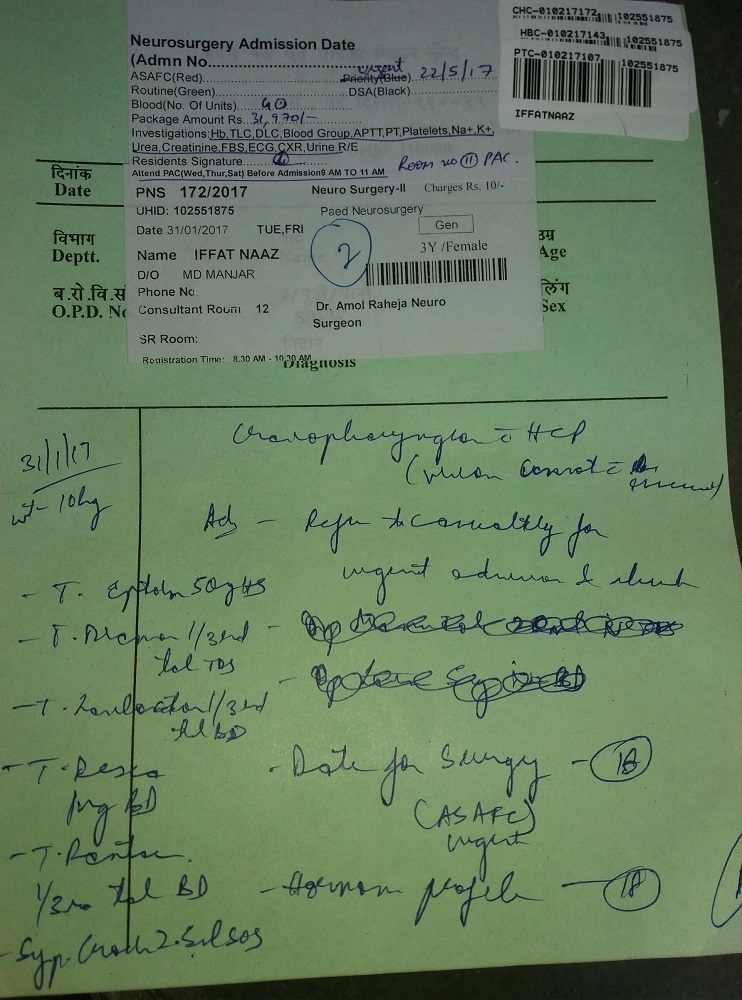 CHC-010217172, 102551875
HBC-010217143, 102551875
PTC-010217107, 102551875
IFFATNAAZ
Neurosurgery Admission Date
(Admn No.
urgent
ASAFC(Red) Priority(Blue) 22/5/17
Routine(Green) DSA(Black)
Blood(No. Of Units)
Package Amount Rs. 31,970/-
Investigations:Hb,TLC,DLC,Blood Group,APTT,PT,Platelets,Na+,K+,
Urea,Creatinine,FBS,ECG,CXR,Urine R/E
Residents Signature Room no 11 PAC.
Attend PAC(Wed,Thur,Sat) Before Admission9 AM TO 11 AM
PNS 172/2017 Neuro Surgery-II Charges Rs. 10/-
UHID: 102551875 Paed Neurosurgery
Date 31/01/2017 TUE,FRI Gen
Name IFFAT NAAZ 2 3Y /Female
D/O MD MANJAR
Phone No.
Consultant Room 12 Dr. Amol Raheja Neuro
Surgeon
SR Room:
Registration Time: 8.30 AM - 10.30 AM
दिनांक
Date
विभाग उम्र
Deptt. Age
ब.रो.वि.सं लिंग
O.P.D. No Sex
Diagnosis
31/1/17
wt- 10kg
Craniopharyngioma c HCP
Adv - Refer to Casualty for
urgent admission & shunt
- T. Eptoin 50mg HS
- T. Diamox 1/3rd
tab TDS
1/3rd
tab BD
- Date for Surgery - 18
(ASAFC)
urgent
mg BD
- T. Rantac
1/3rd tab BD
- Hormone profile - 18
- Syp. 2.5ml SOS